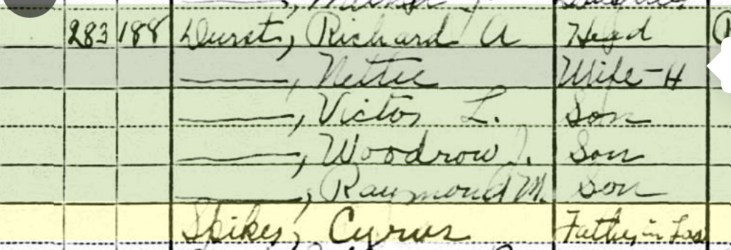 283 188 Durst, Richard A Head
———, Nettie Wife-H
———, Victor L. Son
———, Woodrow J. Son
———, Raymond M. Son
Spikes, Cyrus Father in Law